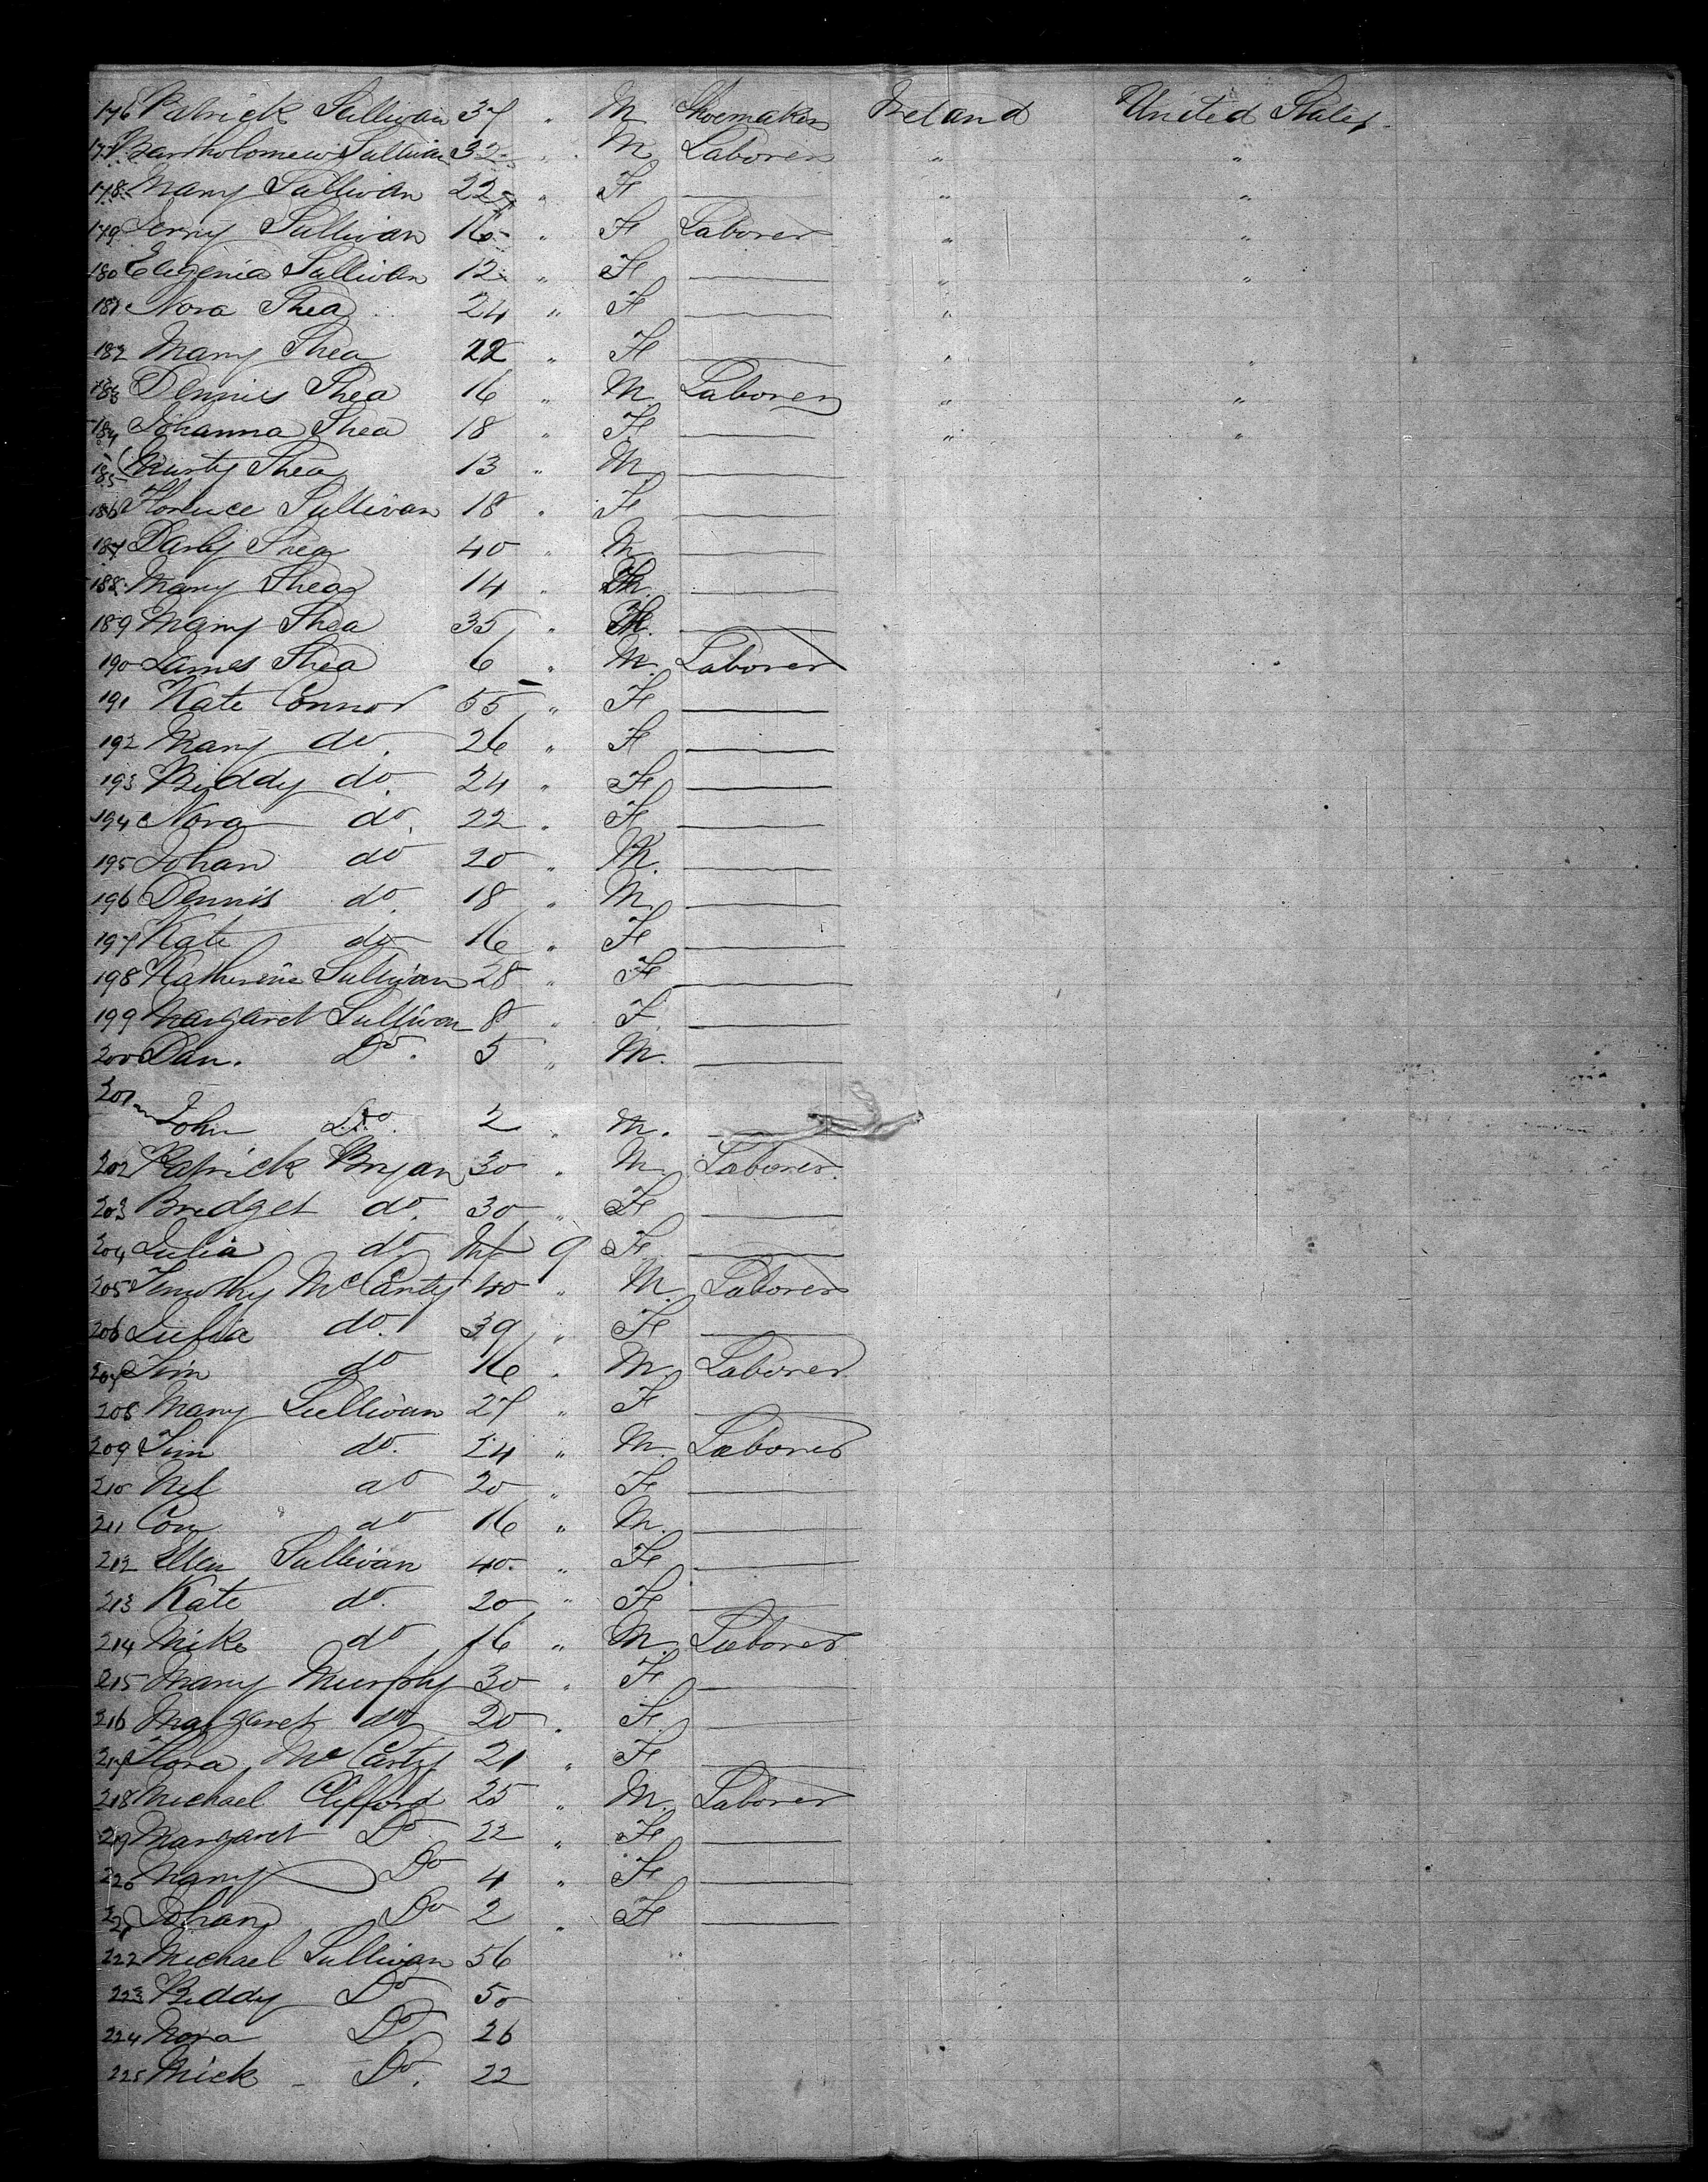 176 Patrick Sullivan 37 " M Shoemaker Ireland United States
177 Bartholomew Sullivan 32 " M Laborer " "
178 Mary Sullivan 22 " F — " "
179 Jerry Sullivan 16 " F Laborer " "
180 Eugenia Sullivan 12 " F — " "
181 Nora Shea 24 " F — "
182 Mary Shea 22 " F — " "
183 Dennis Shea 16 " M Laborer " "
184 Johanna Shea 18 " F — " "
185 Murty Shea 13 " M —
186 Florence Sullivan 18 " F —
187 Darby Shea 40 " M —
188 Mary Shea 14 " —
189 Mary Shea 35 " —
190 James Shea 6 " M Laborer
191 Kate Connor 55 " F —
192 Mary do. 26 " F —
193 Biddy do. 24 " F —
194 Nora do. 22 " F —
195 Johan do 20 " M. —
196 Dennis do. 18 " M. —
197 Kate do 16 " F —
198 Katherine Sullivan 28 " F —
199 Margaret Sullivan 8 " F. —
200 Dan. Do. 5 " M. —
201 John Do. 2 " M. —
202 Patrick Bryan 30 " M. Laborer
203 Bridget do. 30 " F —
204 Julia do Inf 9 F —
205 Timothy McCarty 40 " M. Laborer
206 Julia do. 39 " F —
207 Tim do 16 " M Laborer
208 Mary Sullivan 27 " F —
209 Tim do. 24 " M. Laborer
210 Nel do 20 " F —
211 Con do 16 " M. —
212 Ellen Sullivan 40. " F —
213 Kate do. 20 " F —
214 Mike do 16 " M. Laborer
215 Mary Murphy 30 " F —
216 Margaret do 20 " F. —
217 Flora McCarty 21 " F —
218 Michael Clifford 25 " M. Laborer
219 Margaret Do 22 " F —
220 Mary Do 4 " F —
221 Johan Do 2 " F —
222 Michael Sullivan 56
223 Biddy Do 50
224 Nora Do. 26
225 Mick - Do. 22